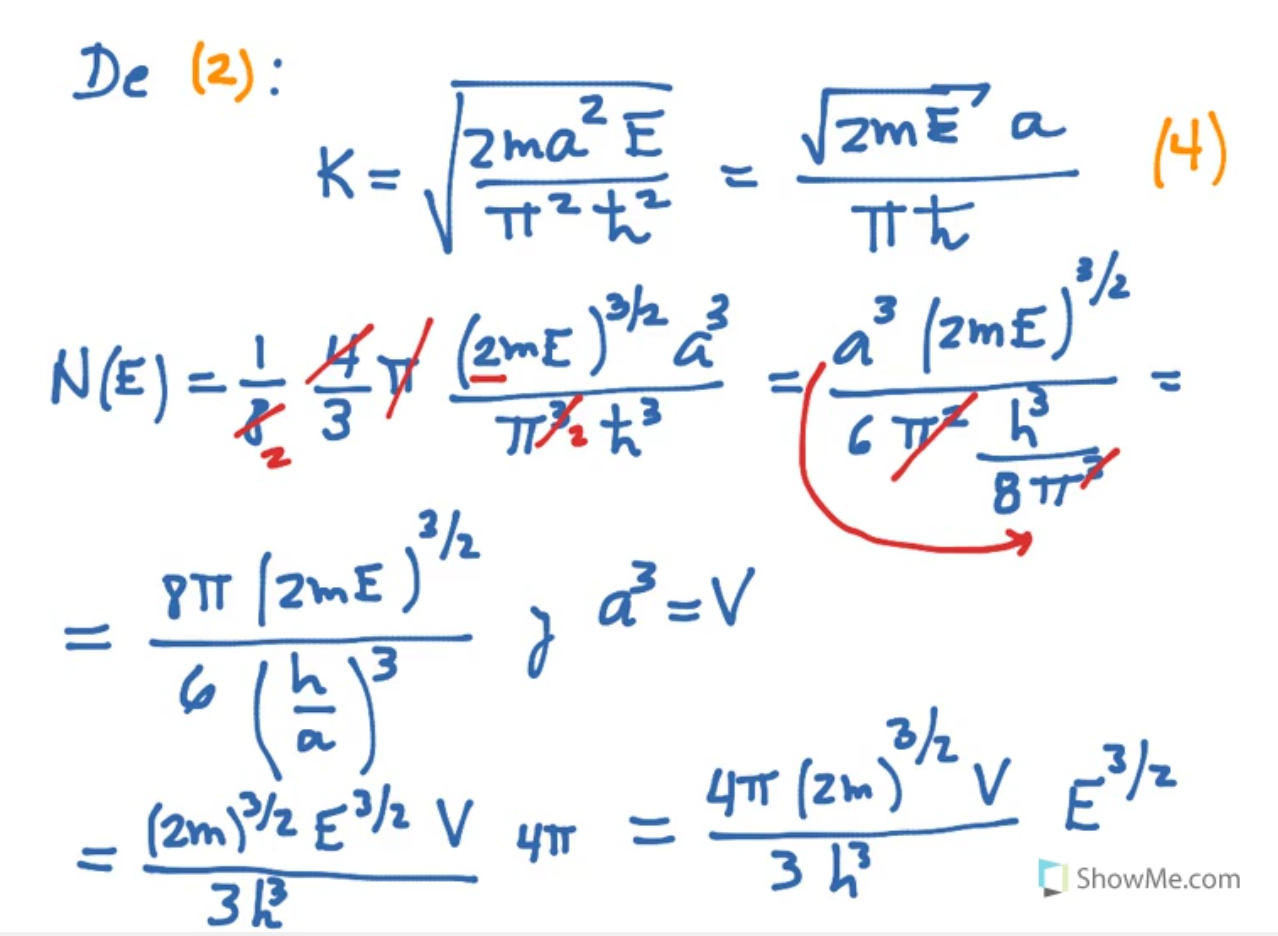 De (2):
K = √(2ma²E / π²ħ²) = √(2mE) a / πħ (4)
N(E) = 1/8 4/3 π (2mE)^3/2 a³ / π³ ħ³ = a³ (2mE)^3/2 / 6π² h³/8π³ =
2 2
= 8π (2mE)^3/2 / 6 (h/a)³ ; a³ = V
= (2m)^3/2 E^3/2 V / 3h³ 4π = 4π (2m)^3/2 V / 3 h³ E^3/2
ShowMe.com